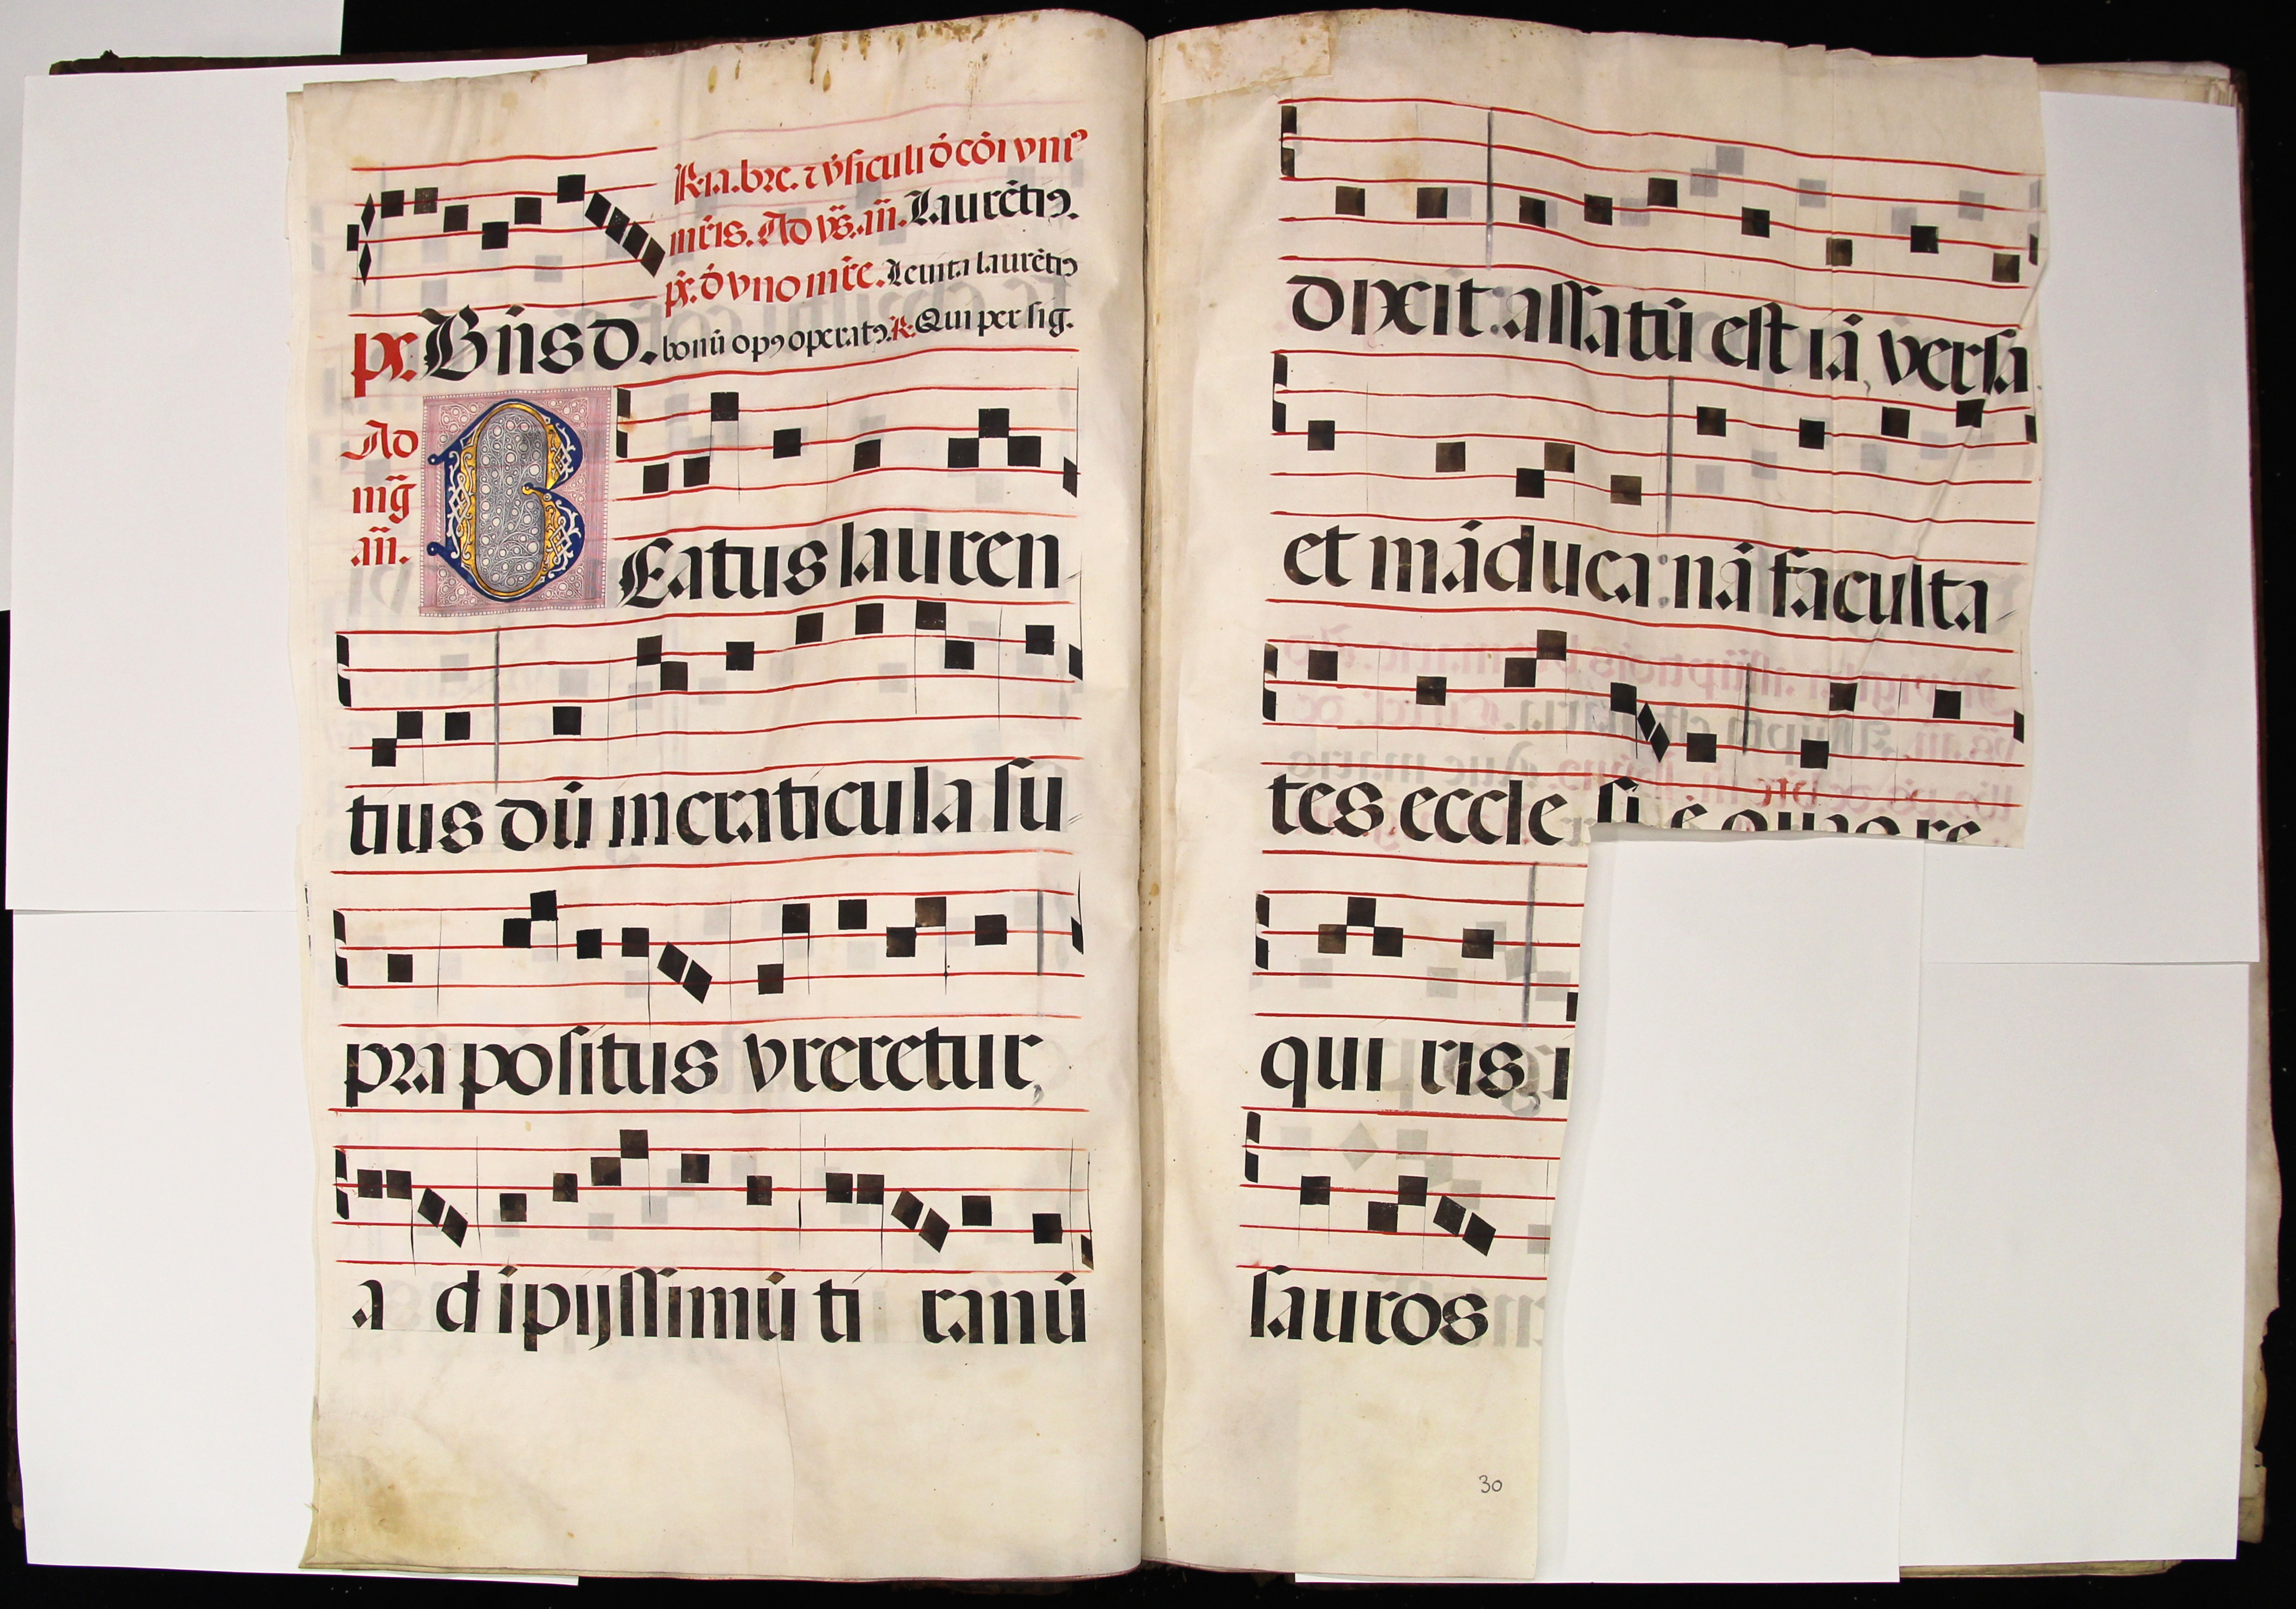 R. ia. bre. ⁊ v̇siculi ď cōi vniꝰ
mr̄is. Ad vs̄. an̄. Laurētiꝰ.
ps̄. ď vno mr̄e. Leuita laurētiꝰ
ps̄. Bn̄s d. bonū opꝰ operatꝰ. R. Qui per sig.
Ad
mḡ
an̄.
BEatus lauren
tius dū in craticula su
pra positus vreretur,
a d ipijssimū ti ranū
dixit: assatū est iā, versa
et māduca: nā faculta
tes eccle si ē quas re
qui ris, i
sauros
30